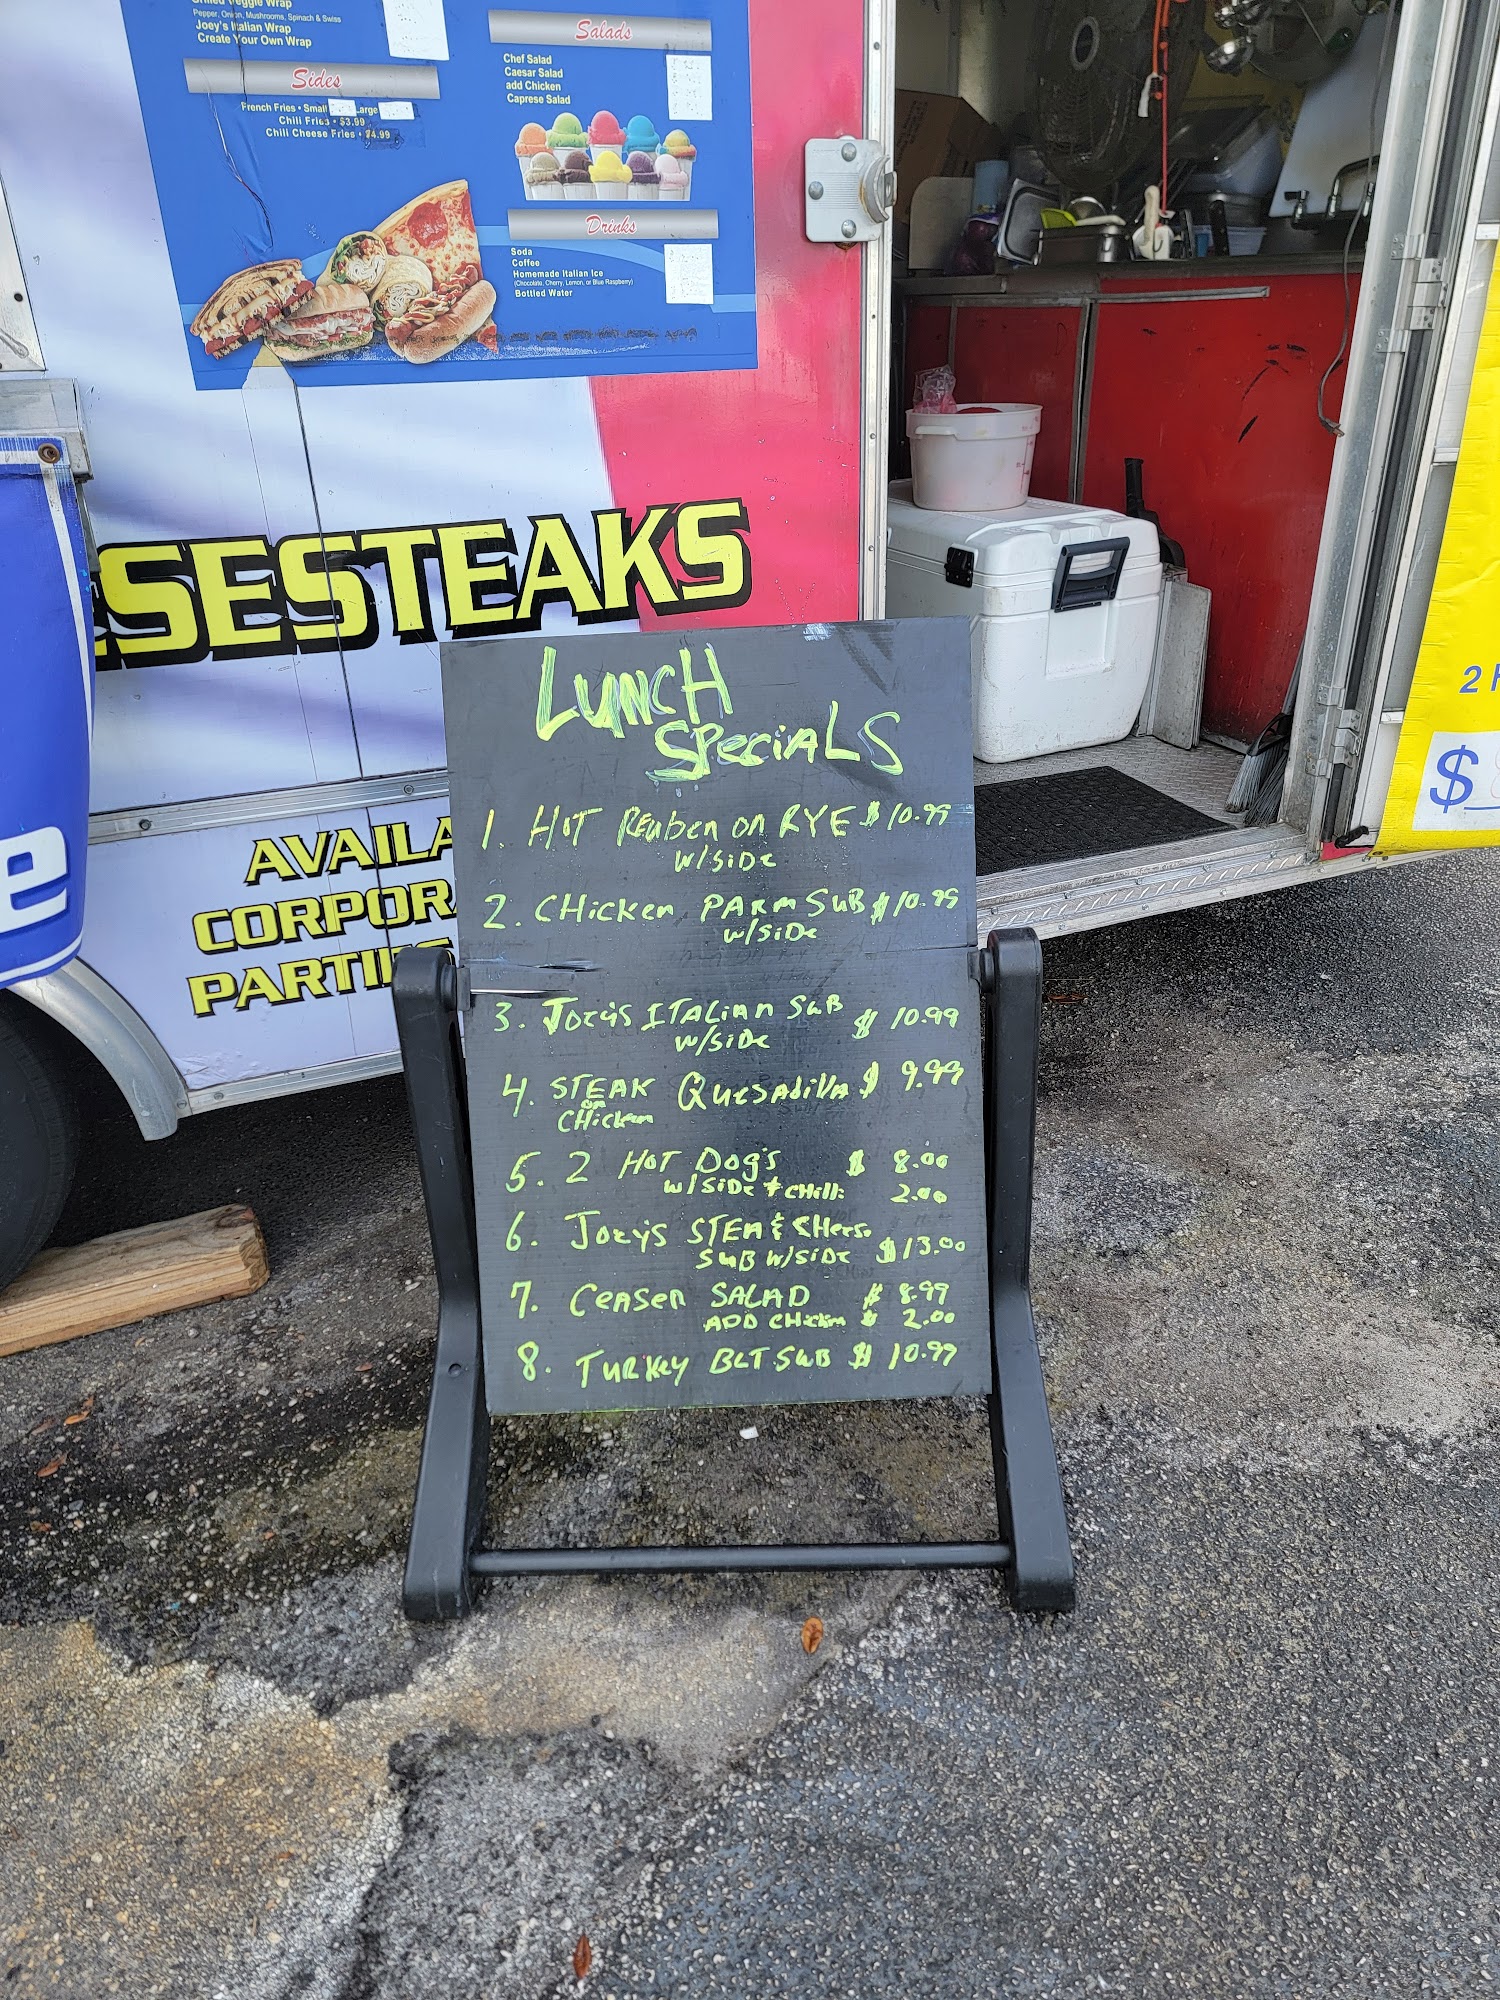 Grilled Veggie Wrap
Pepper, Onion, Mushrooms, Spinach & Swiss
Joey's Italian Wrap
Create Your Own Wrap
Sides
French Fries • Small Large
Chili Fries • $3.99
Chili Cheese Fries • $4.99
Salads
Chef Salad
Caesar Salad
add Chicken
Caprese Salad
Drinks
Soda
Coffee
Homemade Italian Ice
(Chocolate, Cherry, Lemon, or Blue Raspberry)
Bottled Water
ESESTEAKS
AVAILA
CORPORA
PARTIE
e
2 H
$
LUNCH
SPeciALS
1. HOT REuben on RYE $10.99
w/SiDe
2. CHicken PARM SUB $10.99
w/SiDe
3. Joey's ITALian SUB $10.99
w/SiDe
4. STEAK Quesadilla $9.99
on
CHicken
5. 2 HOT Dog's $8.00
w/SiDe + CHili 2.00
6. Joey's STEA & CHeese
SUB w/SiDe $13.00
7. Ceaser SALAD $8.99
ADD CHicken $2.00
8. TuRKey BLT SUB $10.99